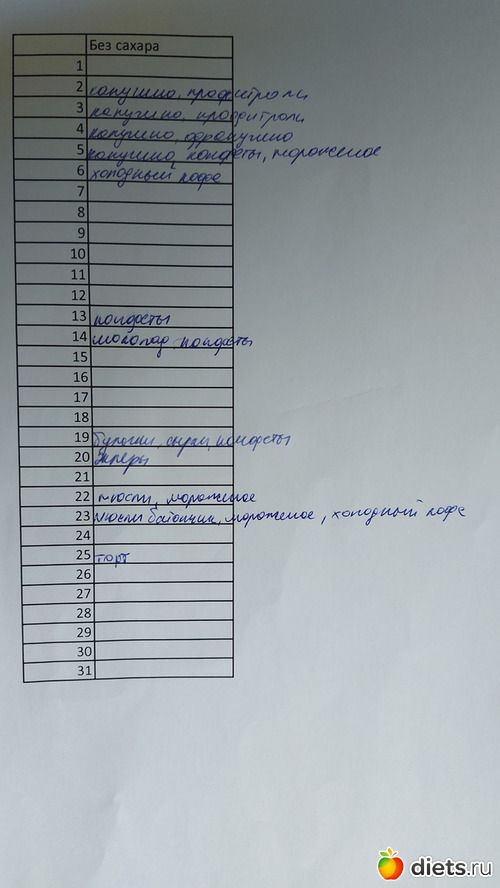 Без сахара
1
2 капучино, профитроли
3 капучино, профитроли
4 капучино, фрапучино
5 капучино, конфеты, мороженое
6 холодный кофе
7
8
9
10
11
12
13 конфеты
14 шоколад, конфеты
15
16
17
18
19 булочки, сырки, конфеты
20 эклеры
21
22 мюсли, мороженое
23 мюсли батончик, мороженое, холодный кофе
24
25 торт
26
27
28
29
30
31
diets.ru